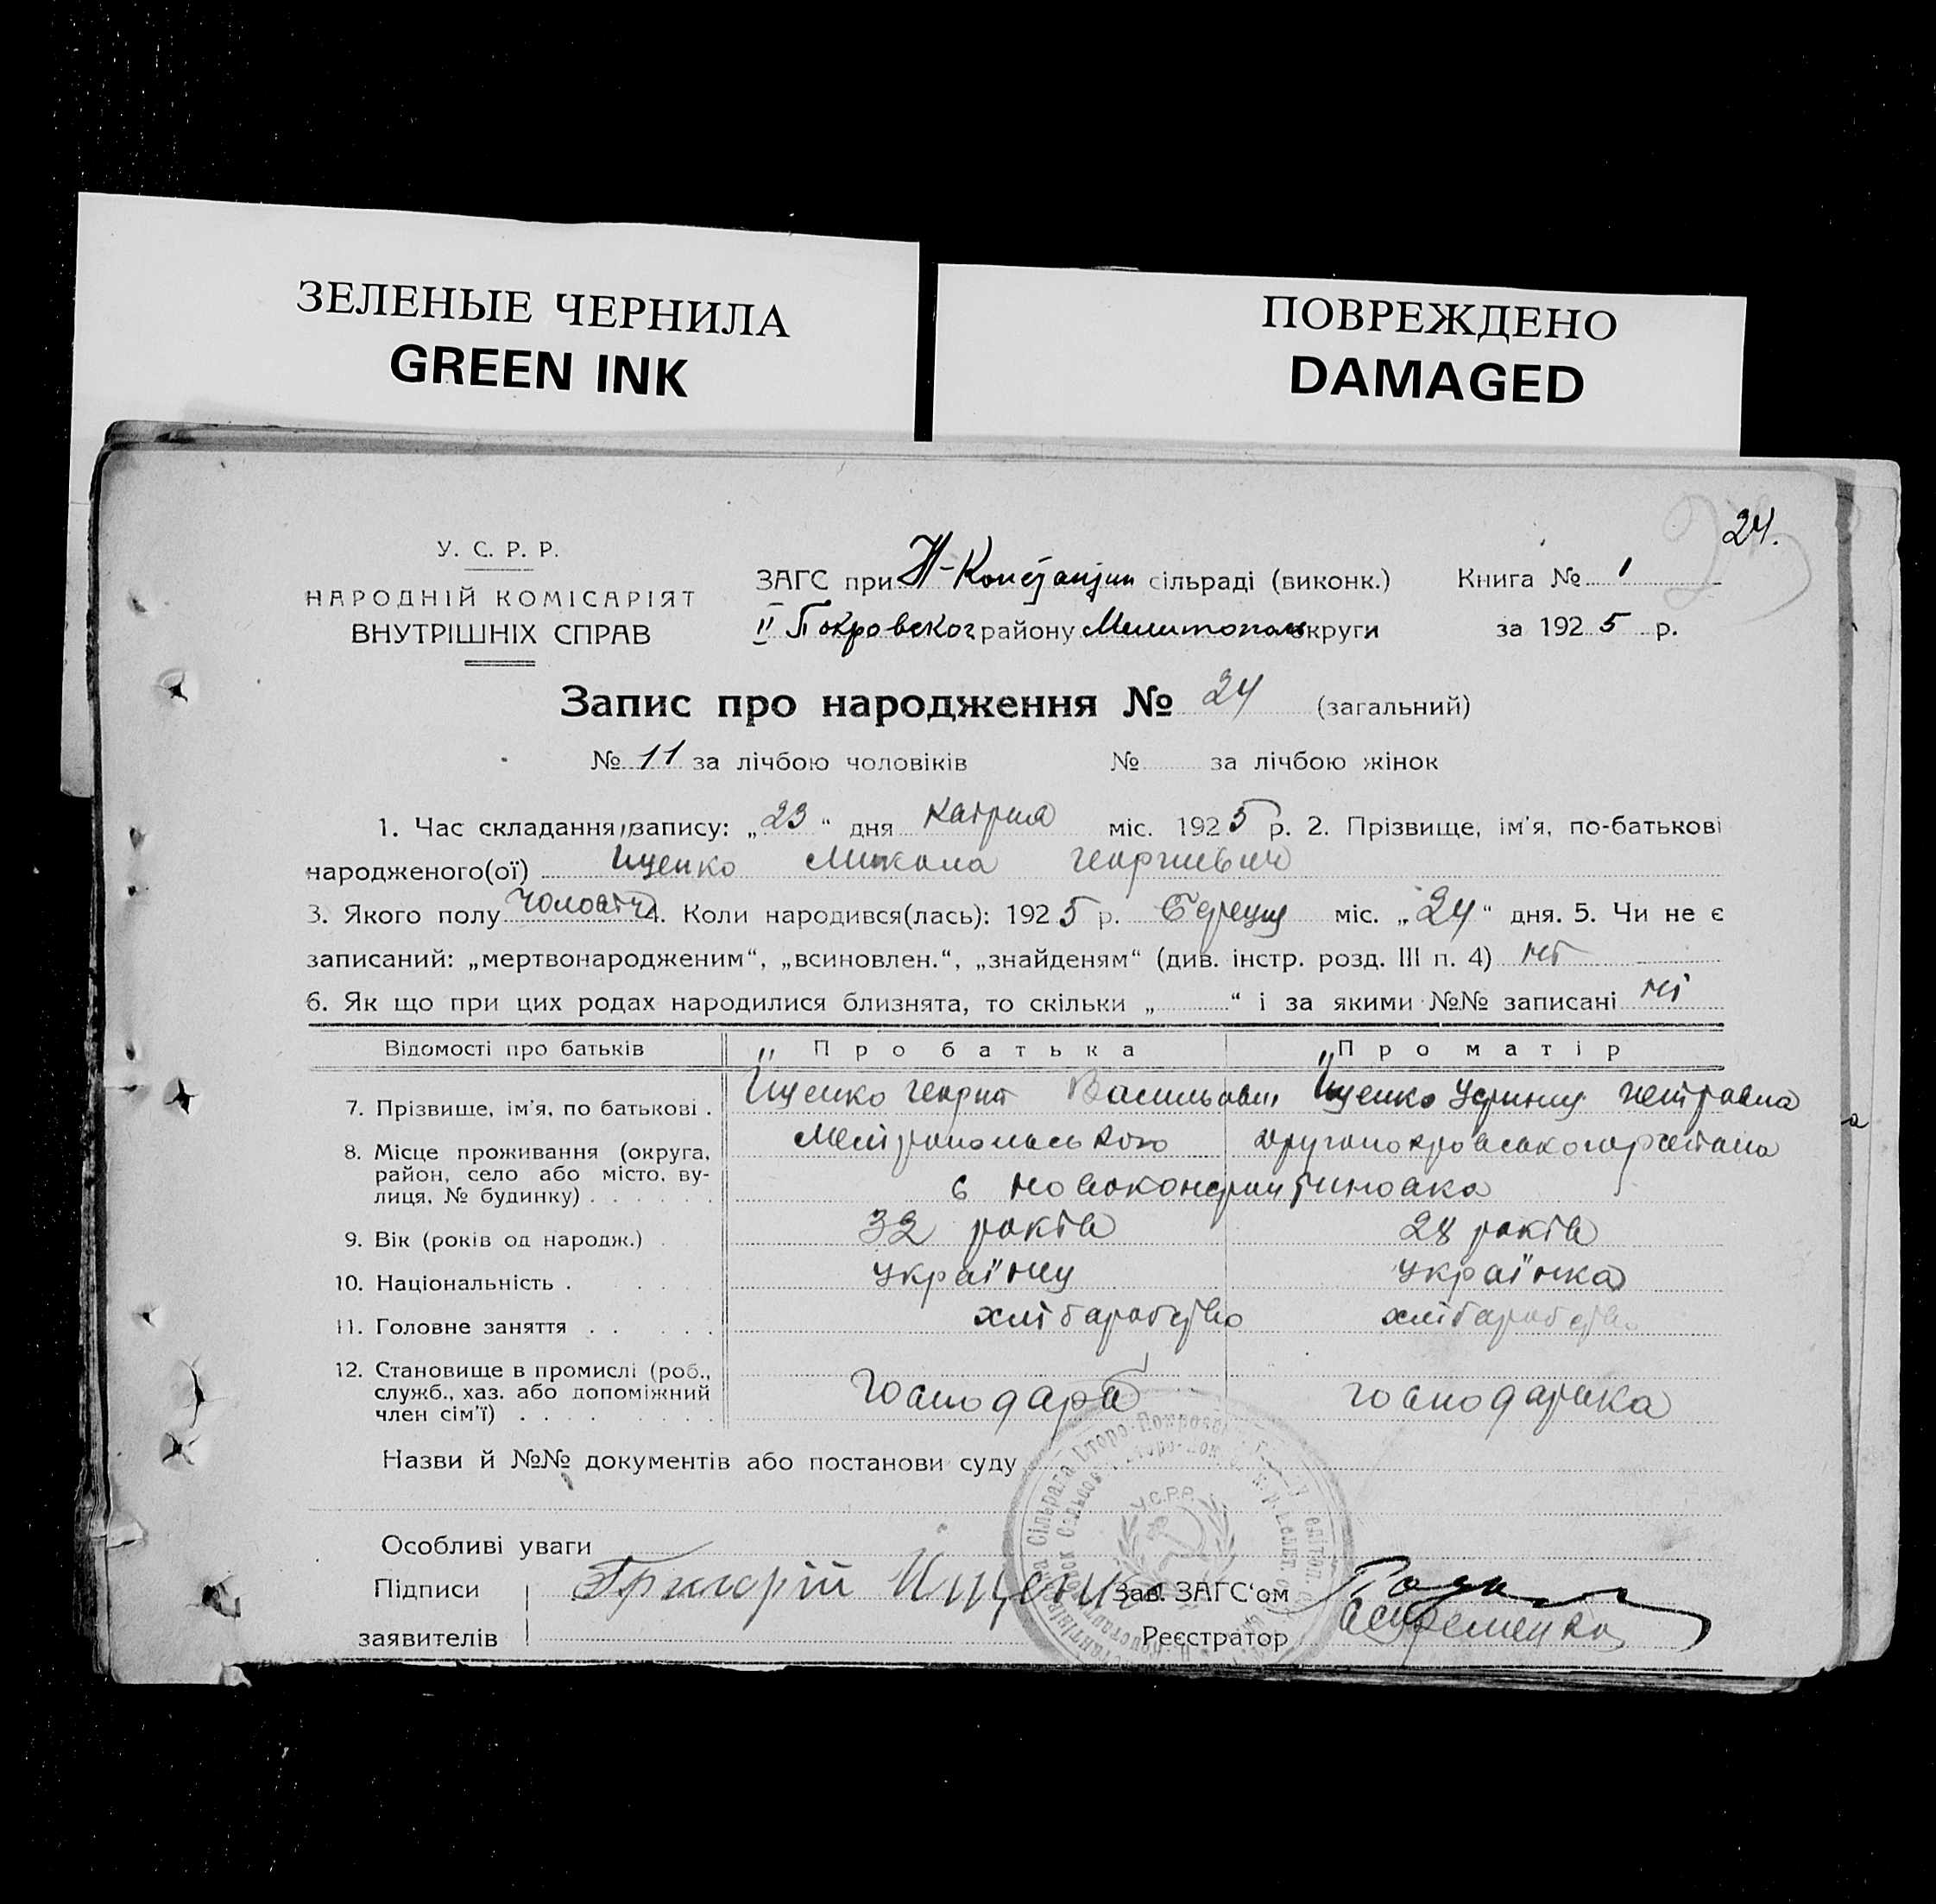 ЗЕЛЕНЫЕ ЧЕРНИЛА
GREEN INK
ПОВРЕЖДЕНО
DAMAGED
24.
У. С. Р. Р.
НАРОДНІЙ КОМІСАРІЯТ
ВНУТРІШНІХ СПРАВ
ЗАГС при Н-Константин сільраді (виконк.) Книга № 1
ІІ Покровског району Мелитополь округи за 1925 р.
Запис про народження № 24 (загальний)
№ 11 за лічбою чоловіків № за лічбою жінок
1. Час складання запису: „23“ дня міс. 1925 р. 2. Прізвище, ім'я, по-батькові
народженого(ої) Ищенко Микола Георгиевич
3. Якого полу 4. Коли народився(лась): 1925 р. міс. „24“ дня. 5. Чи не є
записаний: „мертвонародженим“, „всиновлен.“, „знайденям“ (див. інстр. розд. III п. 4) ні
6. Як що при цих родах народилися близнята, то скільки „ “ і за якими №№ записані ні
Відомості про батьків Про батька Про матір
7. Прізвище, ім'я, по батькові . Ищенко Васильович Ищенко Петровна
8. Місце проживання (округа,
район, село або місто, ву-
лиця, № будинку) . . . . . .
9. Вік (років од народж.) 32 років 28 років
10. Національність . українец українка
11. Головне заняття . . хліборобство хліборобство
12. Становище в промислі (роб.,
служб., хаз. або допоміжний
член сім'ї) . . . господарь господарка
Назви й №№ документів або постанови суду
У.С.Р.Р.
Особливі уваги
Підписи
заявителів
Григорій Ищенко
Зав. ЗАГС'ом
Реєстратор